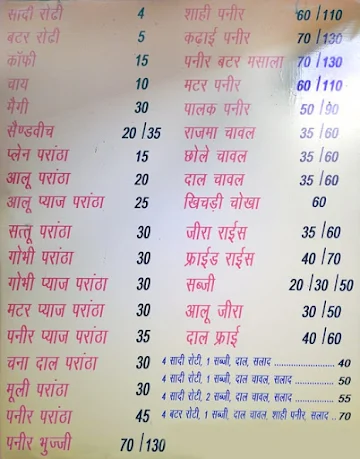 सादी रोटी 4
बटर रोटी 5
कॉफी 15
चाय 10
मैगी 30
सैण्डवीच 20/35
प्लेन परांठा 15
आलू परांठा 20
आलू प्याज परांठा 25
सत्तू परांठा 30
गोभी परांठा 30
गोभी प्याज परांठा 30
मटर प्याज परांठा 30
पनीर प्याज परांठा 35
चना दाल परांठा 30
मूली परांठा 30
पनीर परांठा 45
पनीर भुज्जी 70/130
शाही पनीर 60/110
कढ़ाई पनीर 70/130
पनीर बटर मसाला 70/130
मटर पनीर 60/110
पालक पनीर 50/90
राजमा चावल 35/60
छोले चावल 35/60
दाल चावल 35/60
खिचड़ी चोखा 60
जीरा राईस 35/60
फ्राईड राईस 40/70
सब्जी 20/30/50
आलू जीरा 30/50
दाल फ्राई 40/60
4 सादी रोटी, 1 सब्जी, दाल, सलाद ........................ 40
4 सादी रोटी, 1 सब्जी, दाल चावल, सलाद ............... 50
4 सादी रोटी, 2 सब्जी, दाल चावल, सलाद ............... 55
4 बटर रोटी, 1 सब्जी, दाल चावल, शाही पनीर, सलाद .. 70